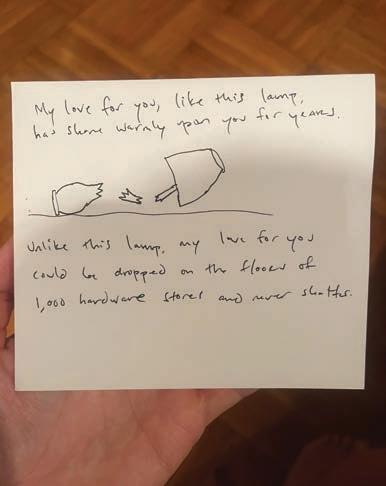 My love for you, like this lamp,
has shone warmly upon you for years.
Unlike this lamp, my love for you
could be dropped on the floors of
1,000 hardware stores and never shatter.